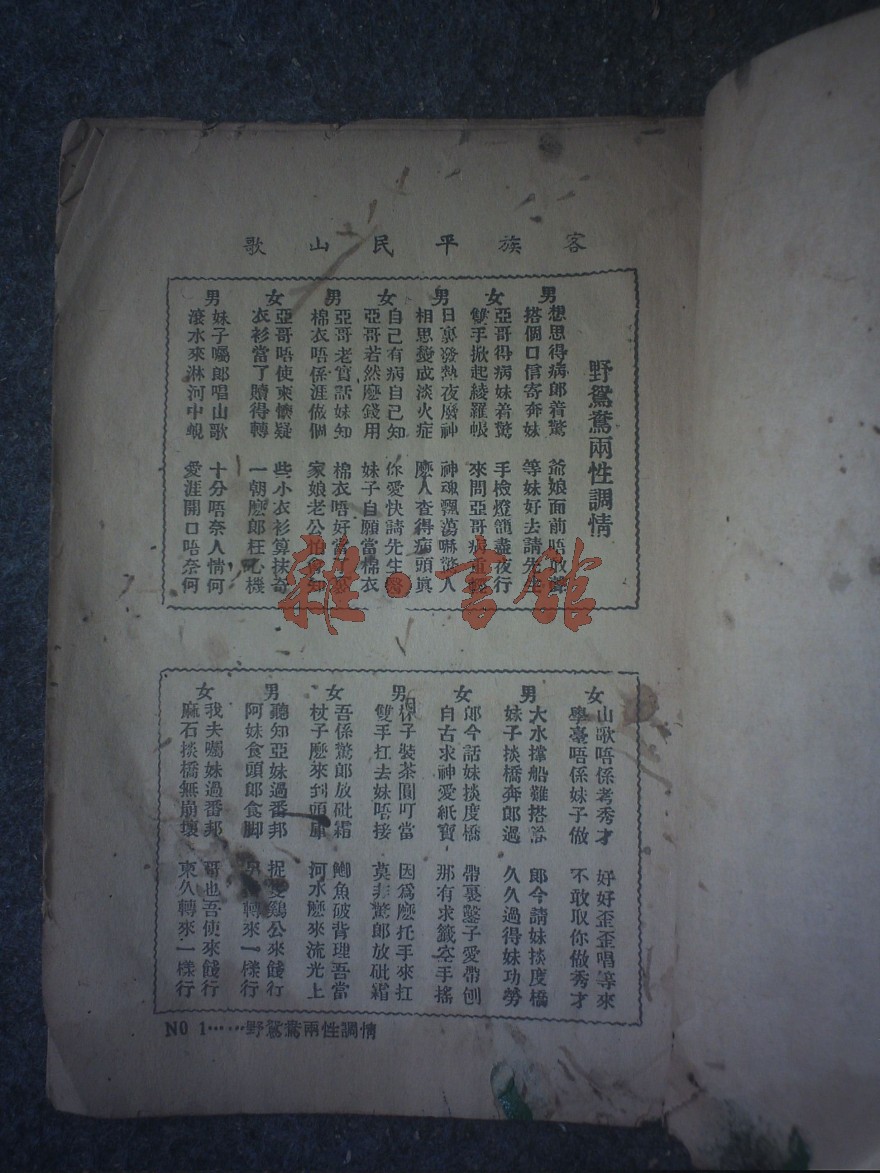 客族平民山歌
野鴛鴦兩性調情
男
想思得病郎着驚 爺娘面前唔敢
搭個口信寄奔妹 等妹好去請先生
女
亞哥得病妹着驚 手撿燈籠盡夜行
雙手掀起綾羅帳 來問亞哥病
男
日裏發熱夜麼神 神魂飄蕩嚇驚人
相思變成淡火症 麼人查得病頭真
女
自己有病自己知 你愛快請先生醫
亞哥若然麼錢用 妹子自願當棉衣
男
亞哥老實話妹知 棉衣唔好當了
棉衣唔係涯做個 家娘老公怕會知
女
亞哥唔使來懷疑 些小衣衫算抹奇
衣衫當了贖得轉 一朝麼郎枉心機
男
妹子囑郎唱山歌 十分唔奈人情何
滾水來淋河中蜆 愛涯開口唔奈何
女
山歌唔係考秀才 好好歪歪唱等來
學臺唔係妹子做 不敢取你做秀才
男
大水撑船難搭 郎今請妹掞度橋
妹子掞橋奔郎過 久久過得妹功勞
女
郎今話妹掞度橋 帶裏鑿子愛帶刨
自古求神愛紙寶 那有求籤空手搖
男
杯子裝茶圓叮當 因爲麼托手來扛
雙手扛去妹唔接 莫非驚郎放砒霜
女
吾係驚郎放砒霜 鯽魚破背理吾當
杖子麼來到頭庫 河水麼來流光上
男
聽知亞妹過番邦 捉雙鷄公來餞行
阿妹食頭郎食脚 轉來一樣行
女
我夫囑妹過番邦 哥也吾使來餞行
麻石掞橋無崩壞 東久轉來一樣行
NO 1……野鴛鴦兩性調情
雜·書館